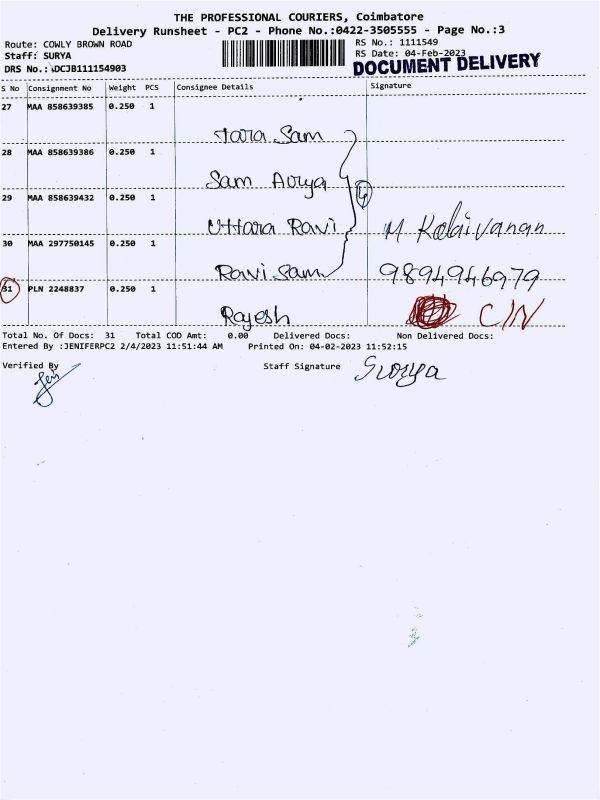 THE PROFESSIONAL COURIERS, Coimbatore
Delivery Runsheet - PC2 - Phone No.:0422-3505555 - Page No.:3
Route: COWLY BROWN ROAD
RS No.: 1111549
Staff: SURYA
RS Date: 04-Feb-2023
DRS No.: DCJB111154903
DOCUMENT DELIVERY
S No Consignment No Weight PCS Consignee Details Signature
27 MAA 858639385 0.250 1
Tara Sam
28 MAA 858639386 0.250 1
Sam Avrya
29 MAA 858639432 0.250 1 4
Uttara Ravi M Kalaivanan
30 MAA 297750145 0.250 1
Ravi Sam 9894946979
31 PLN 2248837 0.250 1
Rajesh C/N
Total No. Of Docs: 31 Total COD Amt: 0.00 Delivered Docs: Non Delivered Docs:
Entered By :JENIFERPC2 2/4/2023 11:51:44 AM Printed On: 04-02-2023 11:52:15
Verified By Staff Signature Surya
Jeni